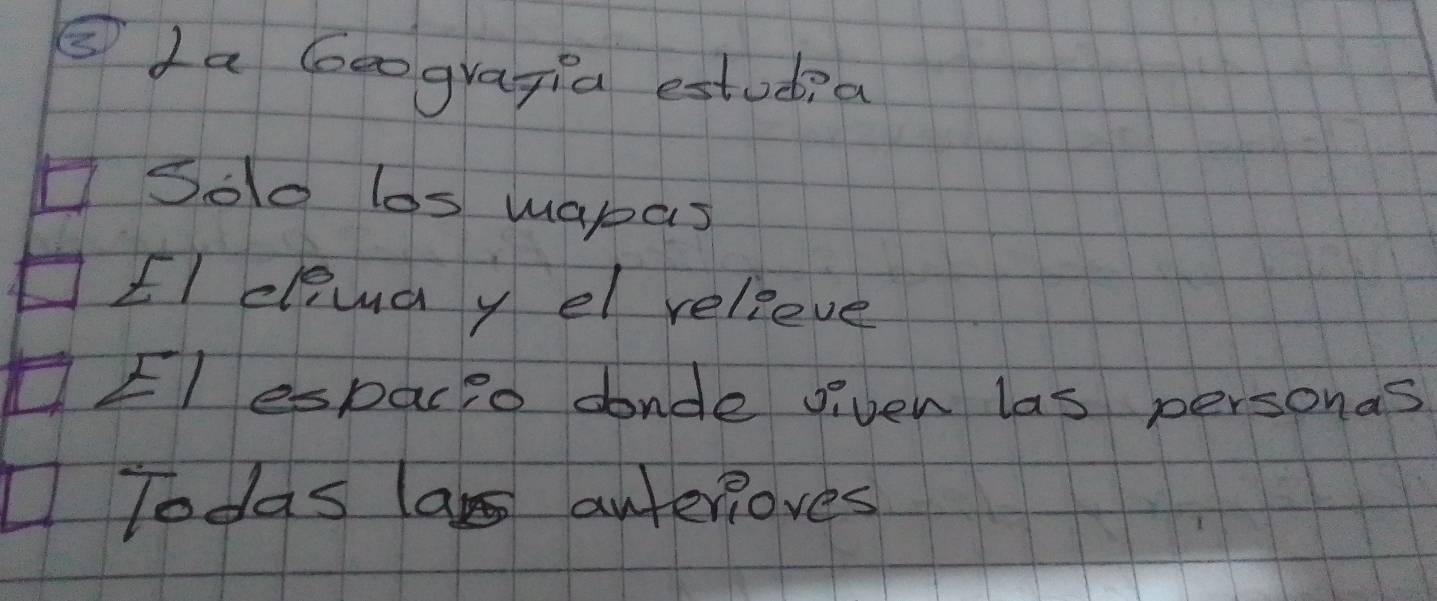 ③ La Geografía estudia
□ Sólo los mapas
□ El clima y el relieve
□ El espacio donde viven las personas
□ Todas las anteriores